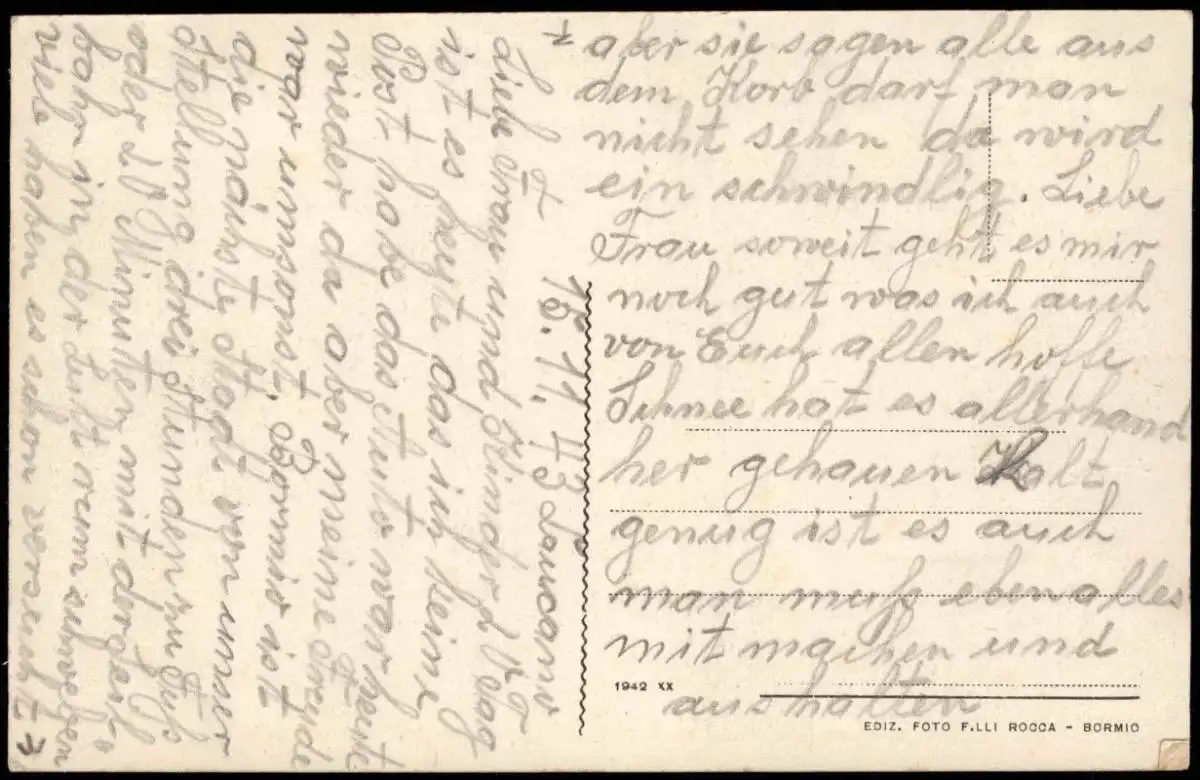 15.11.43
Liebe Frau und Kinder 2 Tag
ist es heute das ich keine
Post habe das Auto war heute
wieder da aber meine Freude
war umsonst. Bormio ist
die nächste Stadt von unser
Stellung drei Stunden zu Fuß
oder Minuten mit der Seil"
bahn in der Luft rum schweben
viele haben es schon versucht
aber sie sagen alle aus
dem Korb darf man
nicht sehen da wird
ein schwindlig. Liebe
Frau soweit geht es mir
noch gut was ich auch
von Euch allen hoffe
Schnee hat es allerhand
her gehauen Kalt
genug ist es auch
man muß eben alles
mit machen und
aushalten
1942 XX
EDIZ. FOTO F.LLI ROCCA - BORMIO